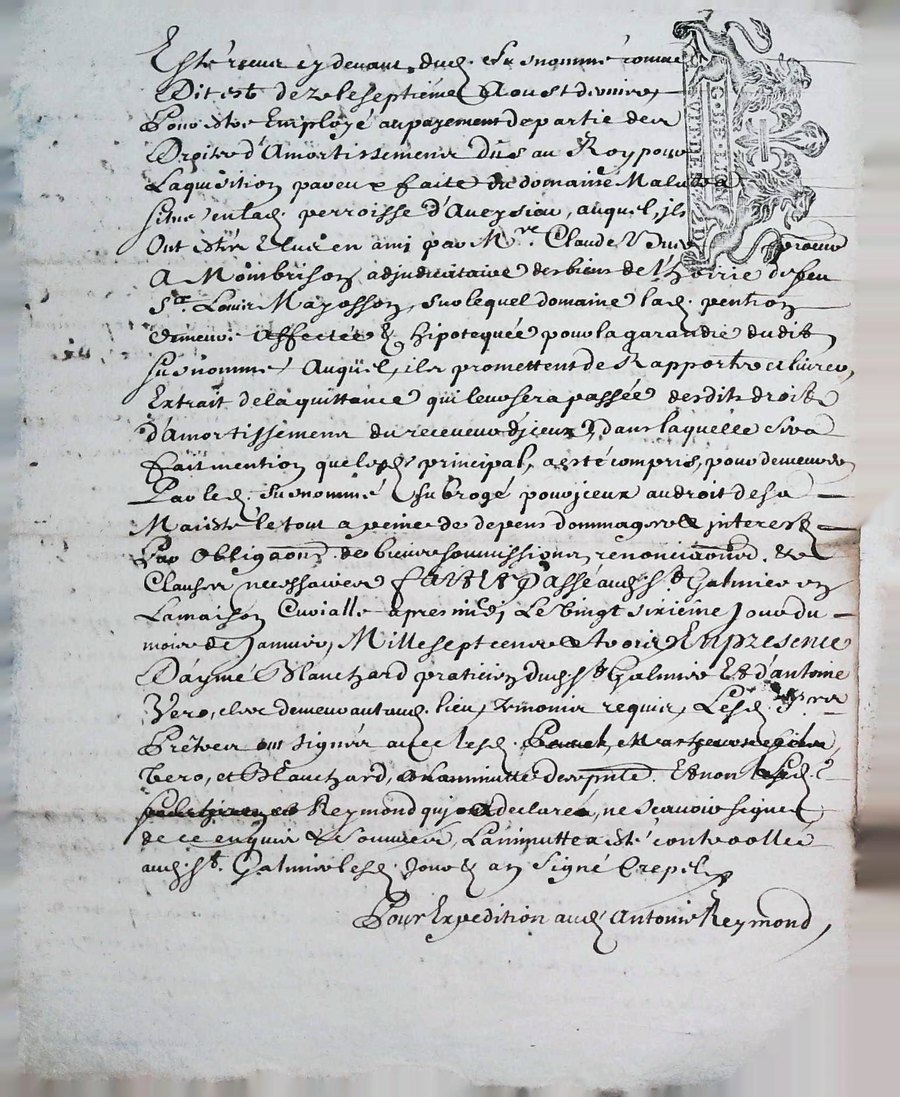 Esté receue cy devant, dud. Susnommé comme
Dit est dez le septiéme Aoust dernier,
Pour estre Employé au payement de partie des
Droits d'Amortissement dus au Roy pour
Laquisition par eux faite du domaine
situé en lad. perroisse d'Aveysieu, auquel, ils
Ont estés Elus en ami par Mre. Claude procur
A Monbrison, adjudicataire des biens de l'hoirie de feu
Sr. Louis Mayosson, sur lequel domaine lad. pention
demeure affectée & hipotequée pour la garandie dudit
susnommé Auquel, ils promettent de Rapporter et livrer,
Extrait de la quittance qui leur sera passée desdits droits
d'amortissement du receveur d'jceux, dans laquelle sera
fait mention que led. principal, a esté compris, pour demeurer
Par led. susnommé subrogé pour jceux au droit de sa
Majesté le tout a peine de depens dommages & interests
Par Obligaons. de biens soumissions, renonciaons. &
Clauses necessaires fait et Passé aud. St. Galmier en
La maison Curialle apres midi, Le vingt sixiéme jour du
mois de Janvier, Mille sept cens & trois En presence
D'aymé Blanchard praticien dud. St. Galmier Et d'antoine
Vero, clerc demeurant aud. lieu, temoins requis, Lesd. Srs
Prêtres ont signés avec lesd.
Vero, et Blanchard, a la minutte des pntes. Et non lesd.
Reymond qui ont declarés, ne scavoir signer
de ce enquis & sommés, La minutte a esté controollée
aud. St. Galmier lesd. Jour & an Signé Crepet
Pour Expedition aud. Antoine Reymond,